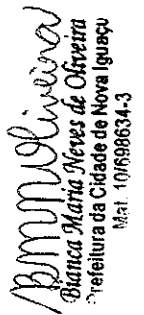 BMNOliveira
Bianca Maria Neves de Oliveira
Prefeitura da Cidade de Nova Iguaçu
Mat. 10/698634-3